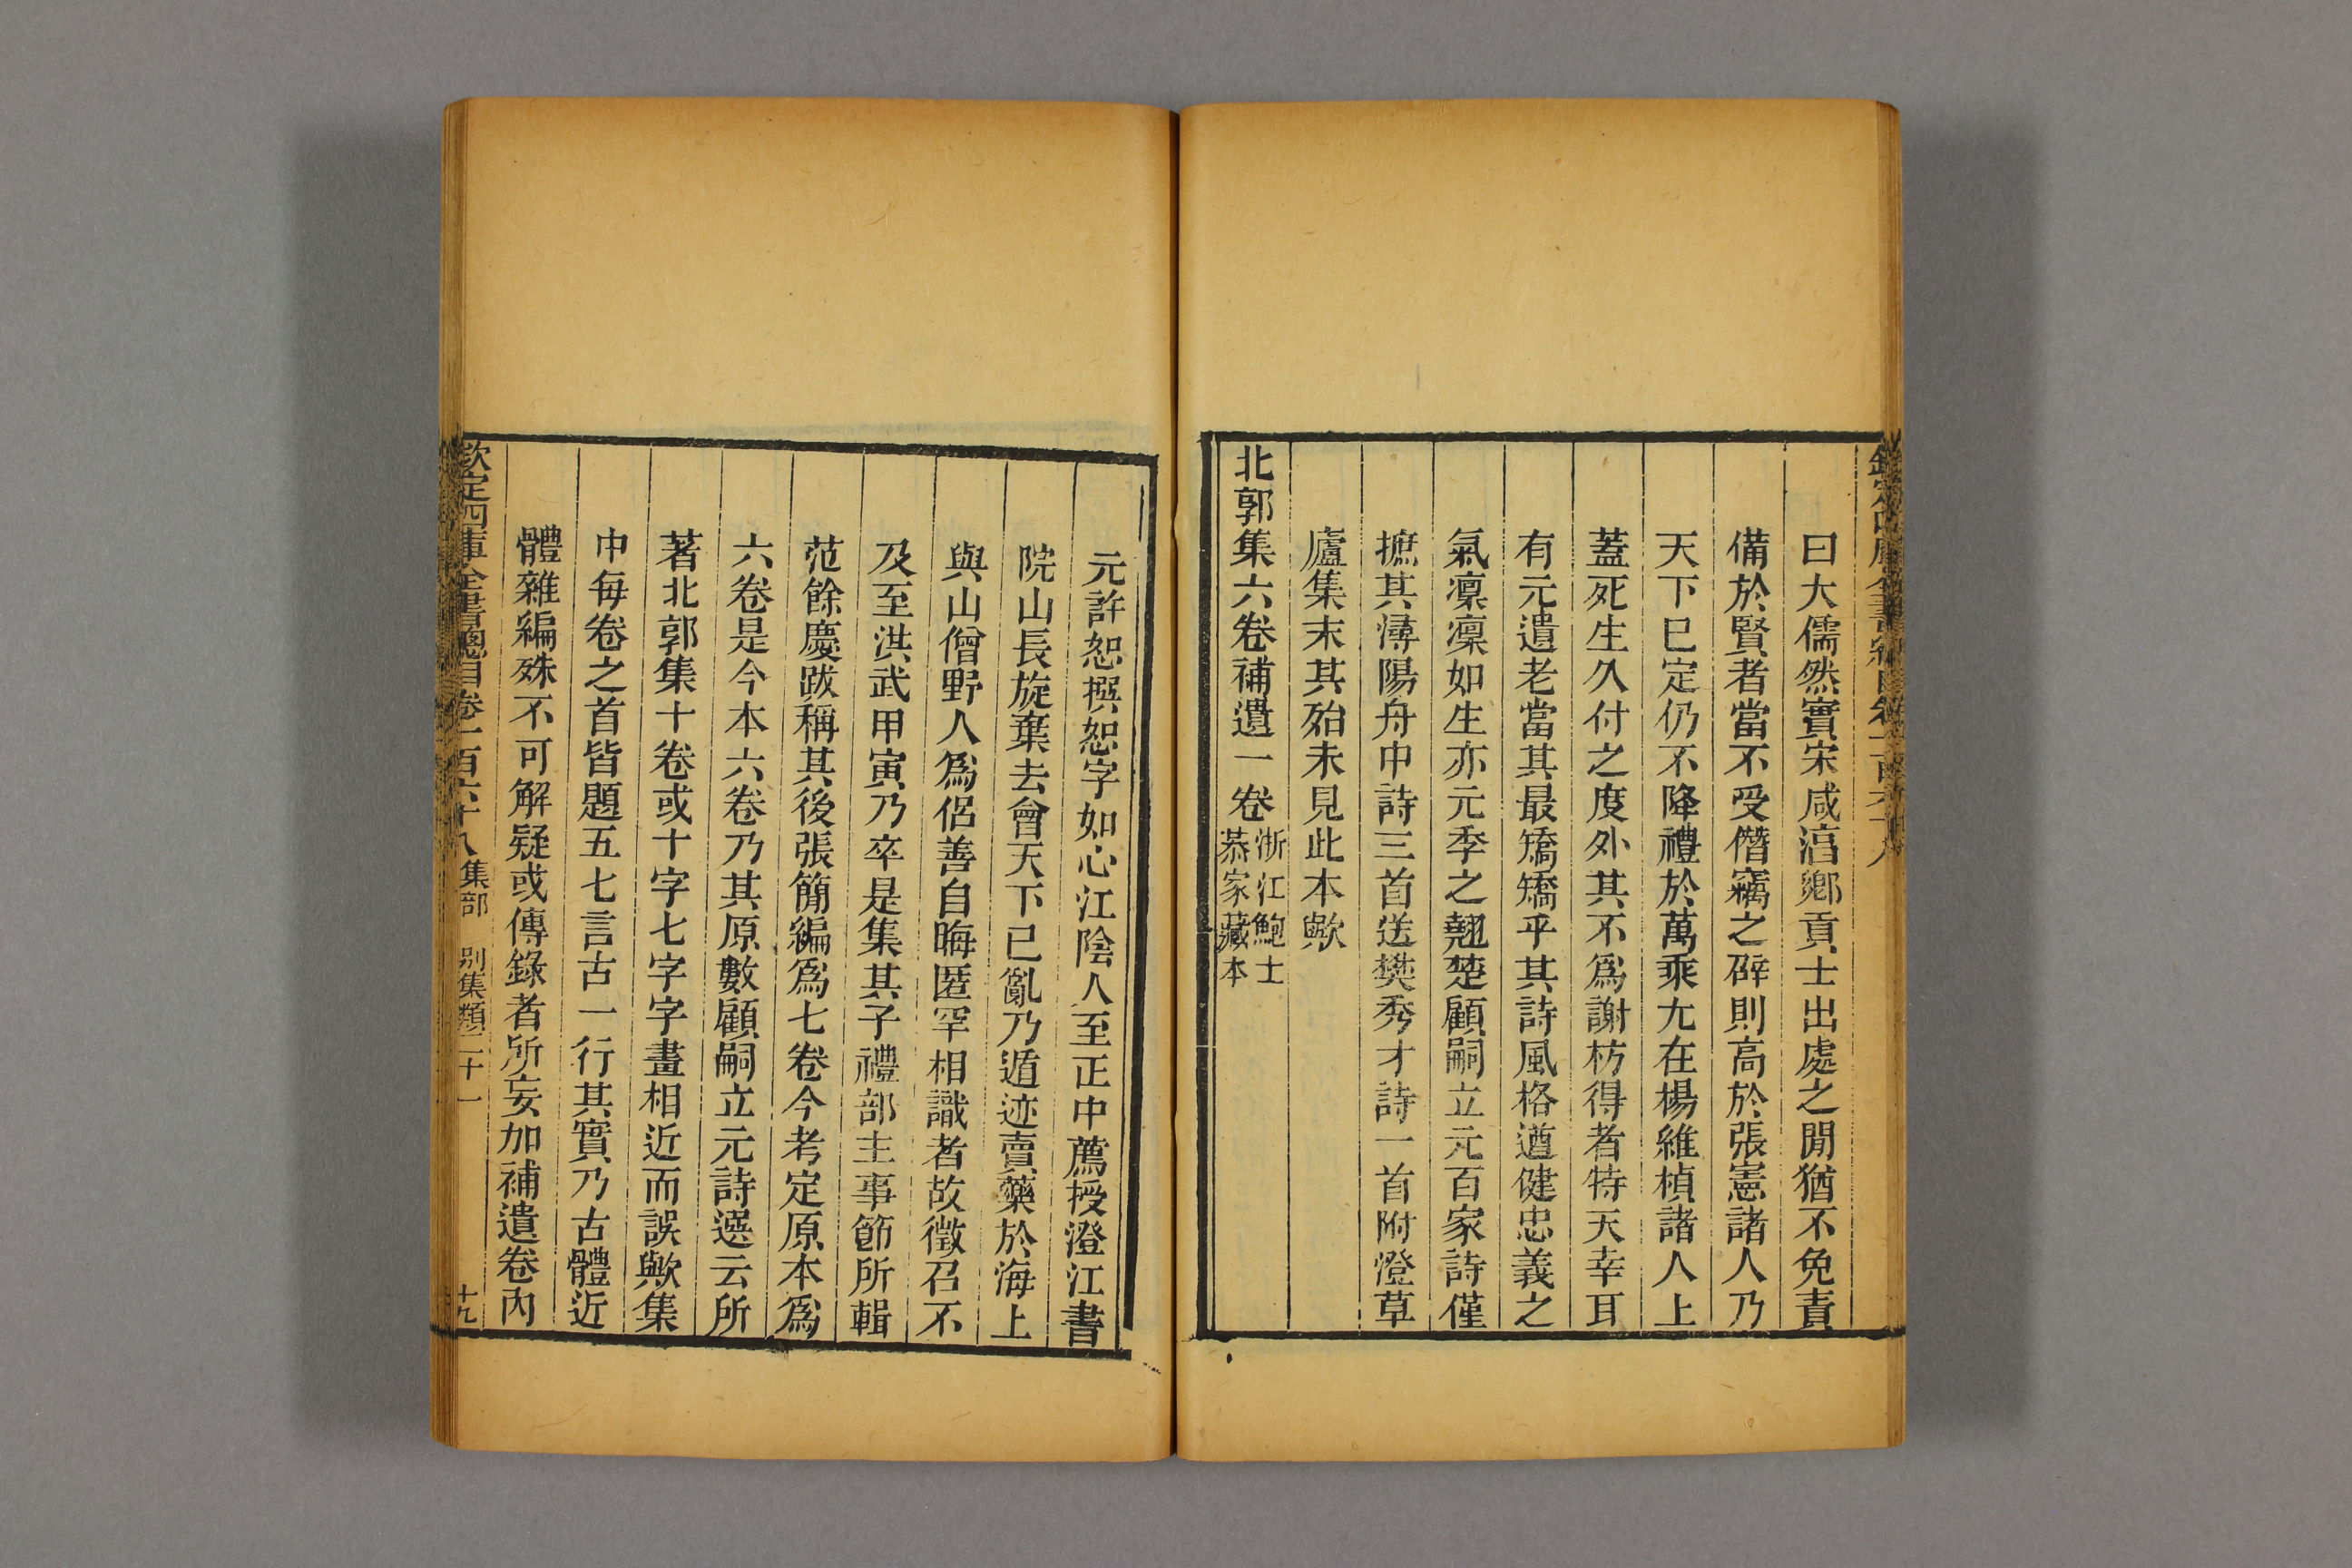 曰大儒然實宋咸淳鄉貢士出處之閒猶不免責
備於賢者當不受僭竊之辟則高於張憲諸人乃
天下已定仍不降禮於萬乘尤在楊維楨諸人上
蓋死生久付之度外其不爲謝枋得者特天幸耳
有元遺老當其最矯矯乎其詩風格遒健忠義之
氣凜凜如生亦元季之翹楚顧嗣立元百家詩僅
摭其潯陽舟中詩三首送樊秀才詩一首附澄草
廬集末其殆未見此本歟
北郭集六卷補遺一卷浙江鮑士
恭家藏本
元許恕撰恕字如心江陰人至正中薦授澄江書
院山長旋棄去會天下已亂乃遁迹賣藥於海上
與山僧野人爲侶善自晦匿罕相識者故徵召不
及至洪武甲寅乃卒是集其子禮部主事節所輯
范餘慶跋稱其後張簡編爲七卷今考定原本爲
六卷是今本六卷乃其原數顧嗣立元詩選云所
著北郭集十卷或十字七字字畫相近而誤歟集
中每卷之首皆題五七言古一行其實乃古體近
體雜編殊不可解疑或傳錄者所妄加補遺卷內
欽定四庫全書總目卷一百六十八 集部 別集類二十一 十九